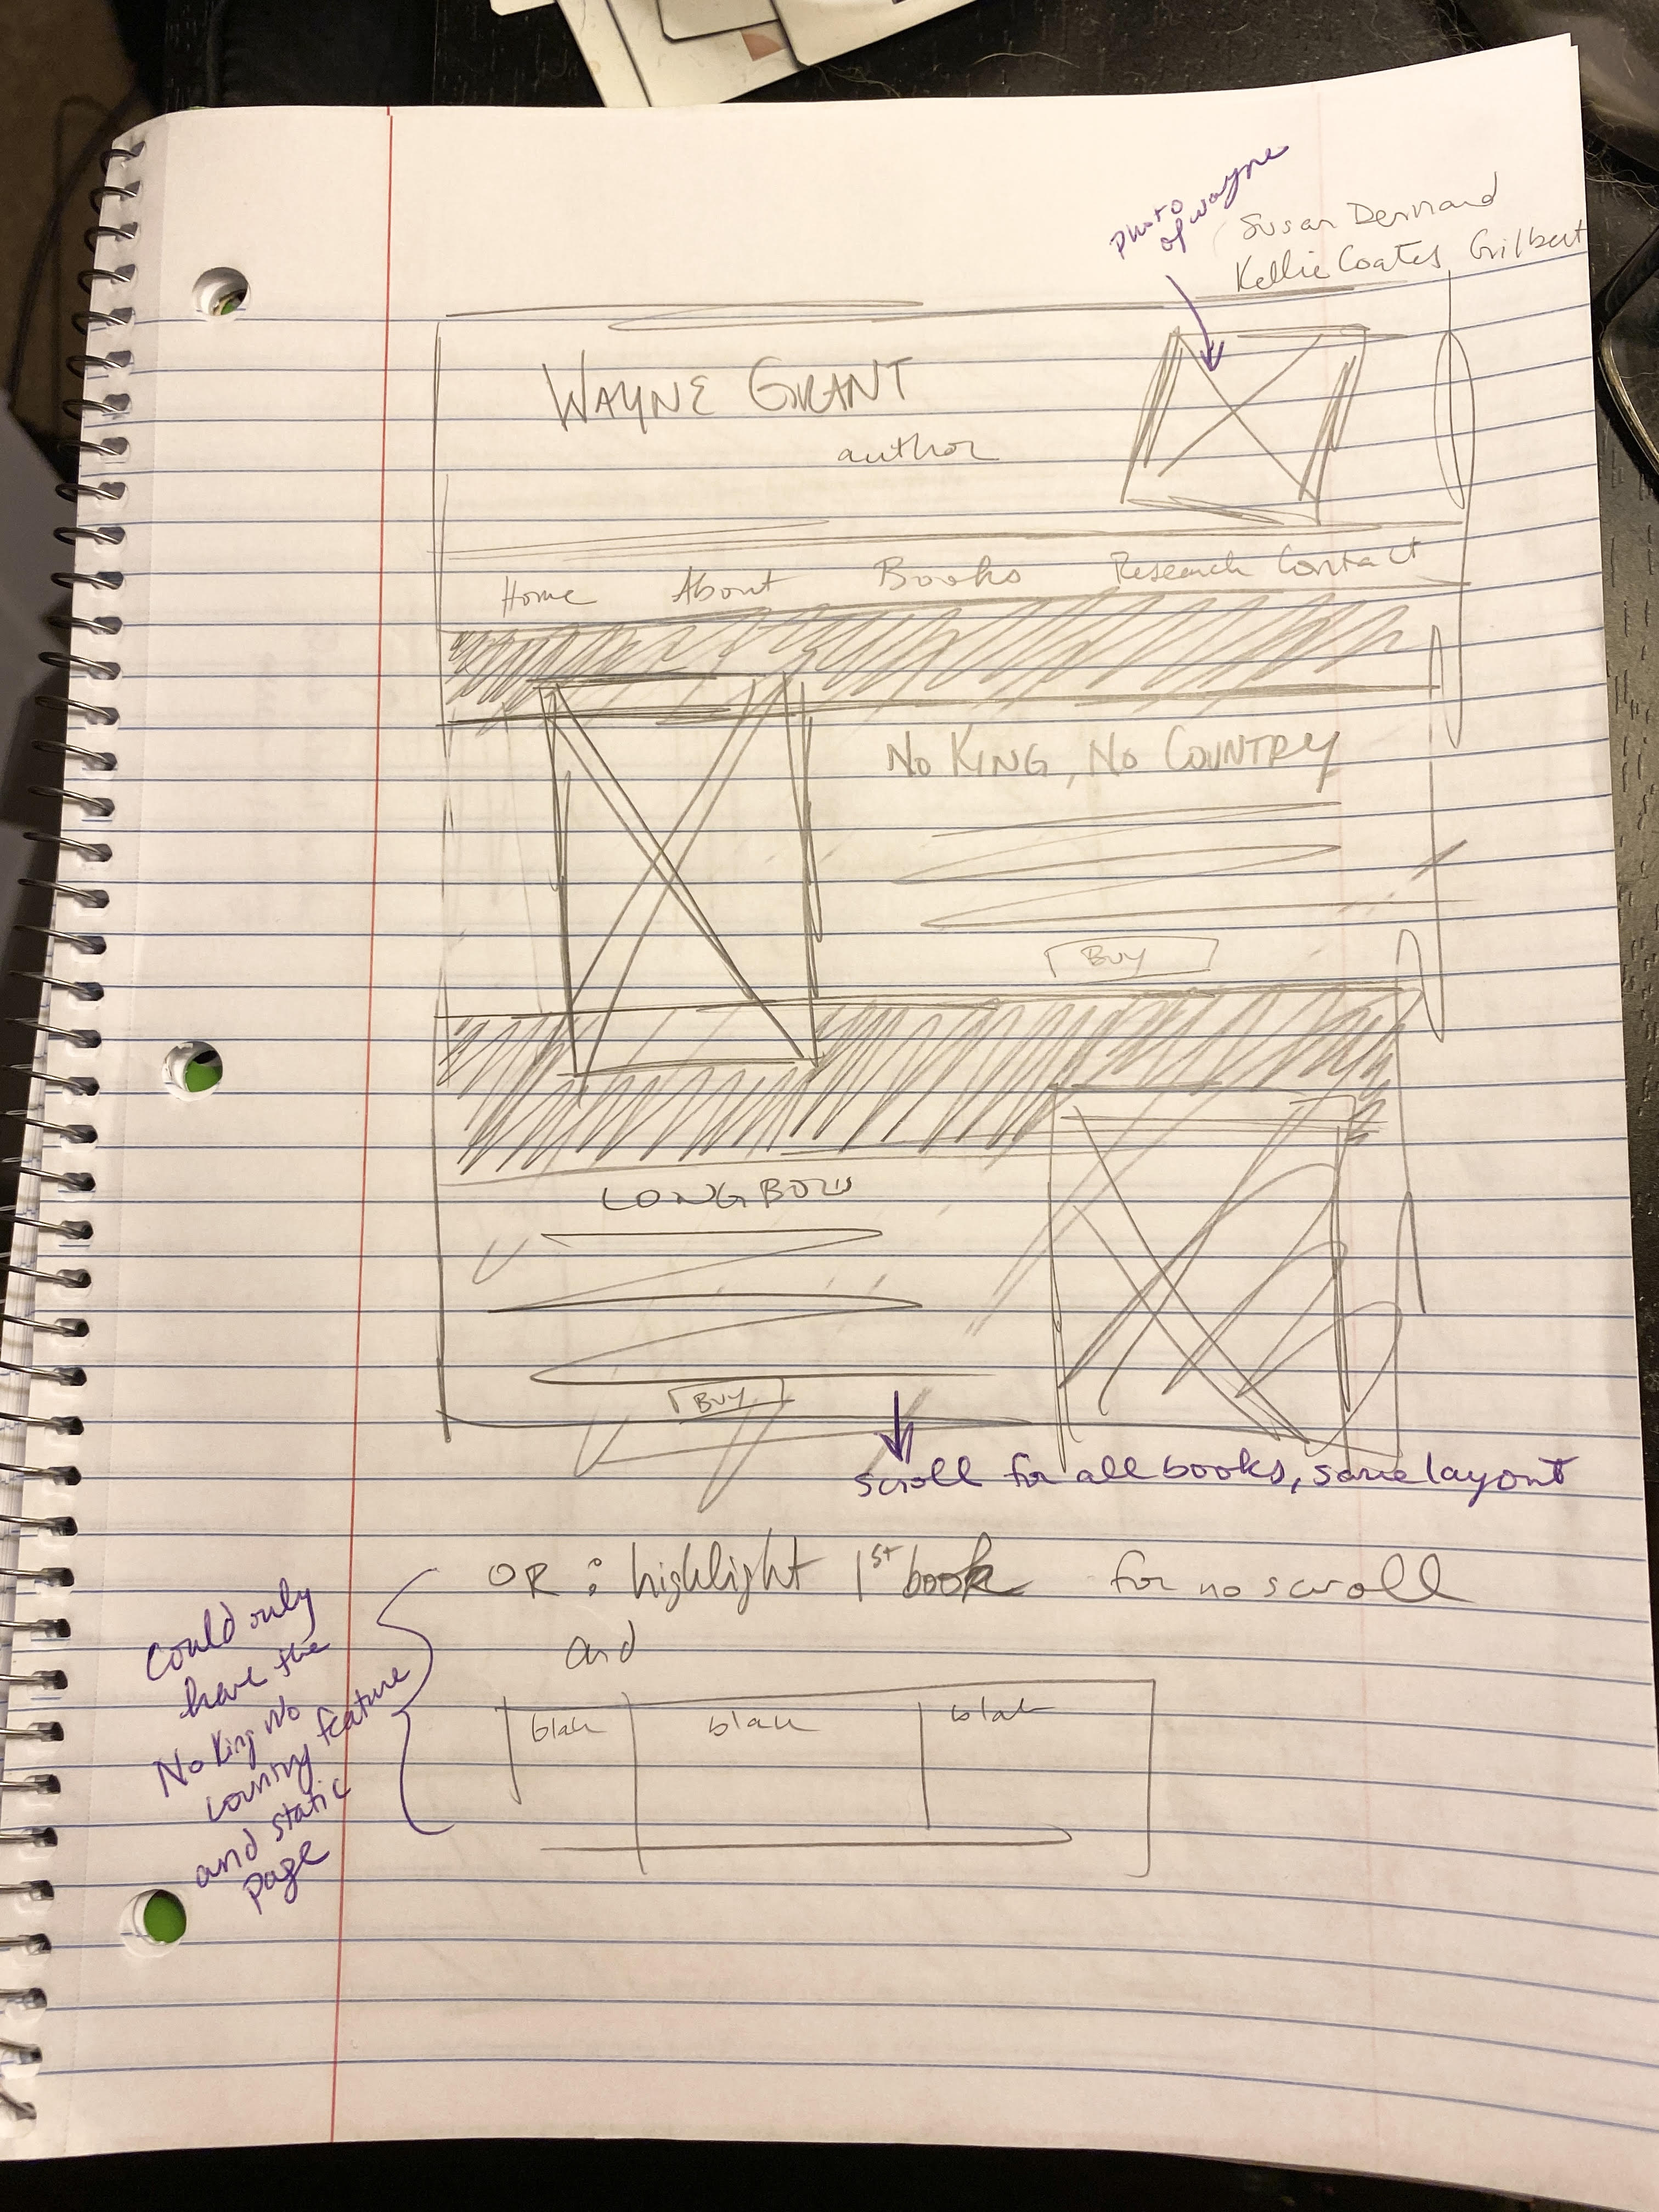 photo
of wayne
Susan Dennard
Kellie Coates Gilbert
WAYNE GRANT
author
Home About Books Research Contact
NO KING, NO COUNTRY
BUY
LONGBOW
BUY
scroll for all books, same layout
OR: highlight 1st book for no scroll
and
blah blah blah
Could only
have the
No King No
country feature
and static
page